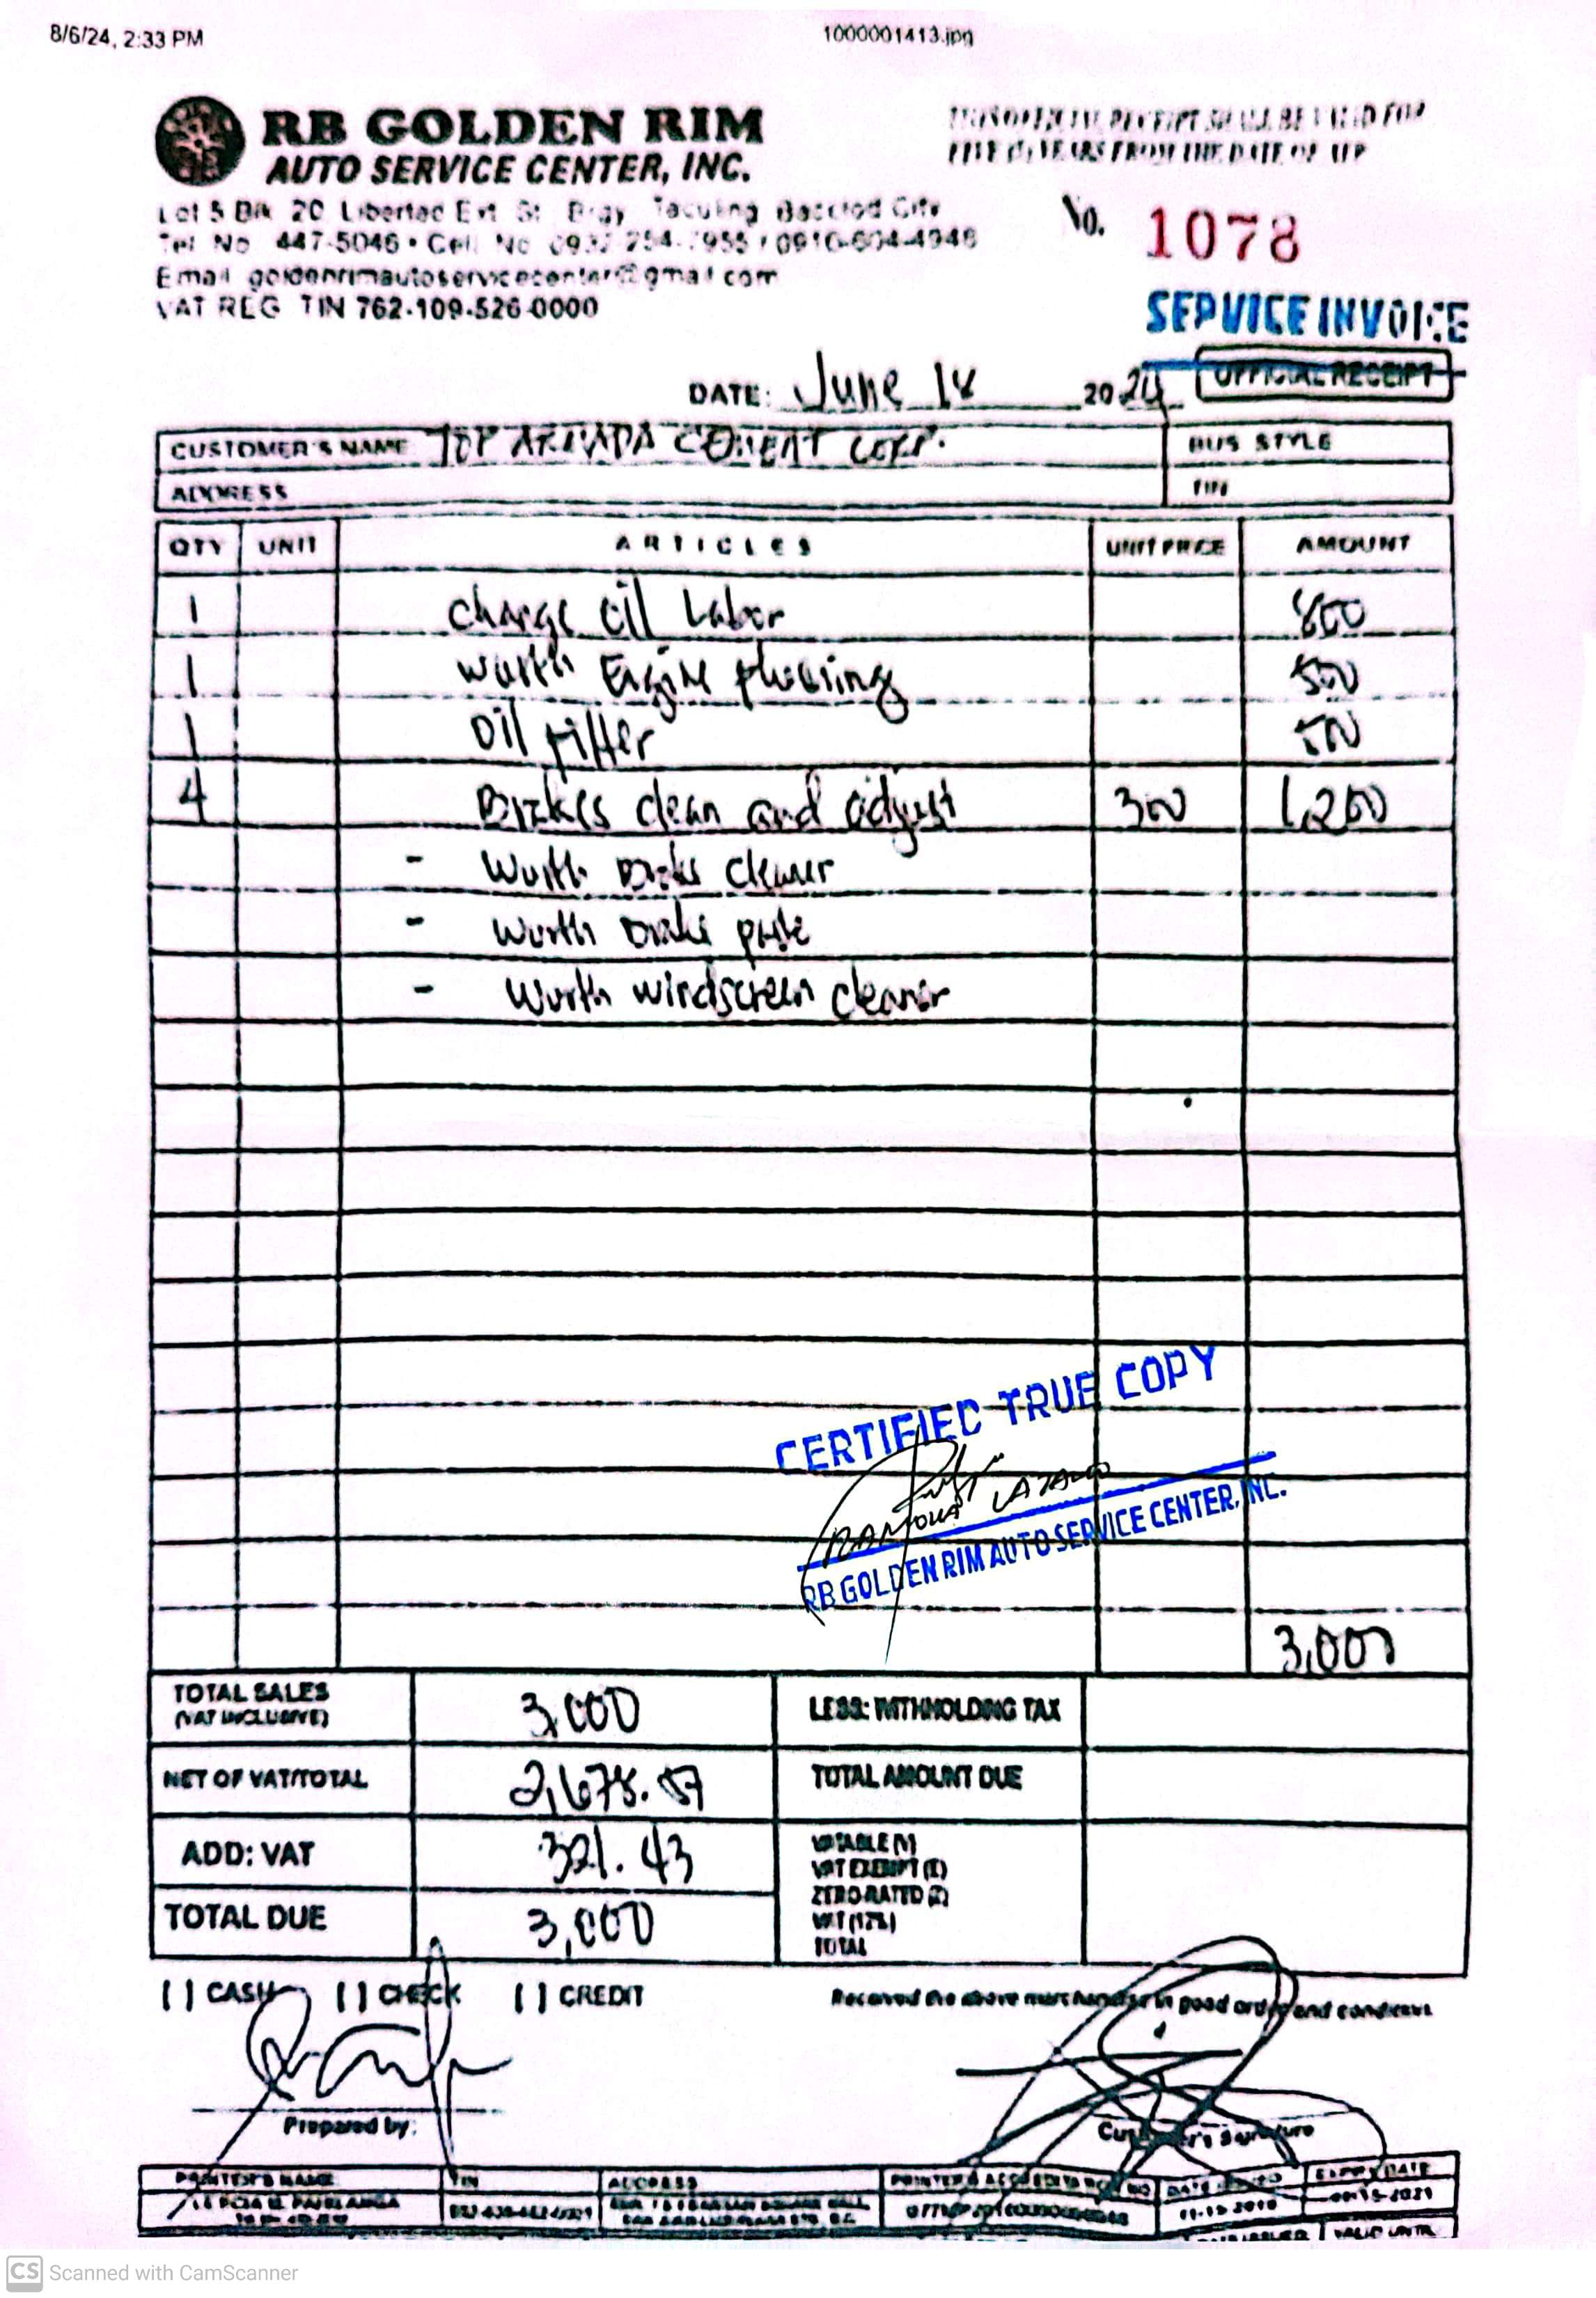 8/6/24, 2:33 PM
1000001413.jpg
RB GOLDEN RIM
AUTO SERVICE CENTER, INC.
THIS OFFICIAL RECEIPT SHALL BE VALID FOR
FIVE (5) YEARS FROM THE DATE OF ATP
Lot 5 Blk 20 Libertad Ext. St. Brgy. Taculing Bacolod City
Tel No 447-5046 • Cell No 0932-254-7955 / 0910-604-4948
Email goldenrimautoservicecenter@gmail.com
VAT REG TIN 762-109-526-0000
No. 1078
SERVICE INVOICE
OFFICIAL RECEIPT
DATE: June 18 2024
CUSTOMER'S NAME TOP ARMADA CEMENT CORP.
BUS STYLE
ADDRESS
TIN
QTY UNIT ARTICLES UNIT PRICE AMOUNT
1 Change Oil Labor 800
1 Wurth Engine Flushing 500
1 Oil Filter 500
4 Brakes clean and adjust 300 1,200
- Wurth Brake Cleaner
- Wurth Brake paste
- Wurth windscreen cleaner
CERTIFIED TRUE COPY
RB GOLDEN RIM AUTO SERVICE CENTER, INC.
3,000
TOTAL SALES
(VAT INCLUSIVE) 3,000
LESS: WITHHOLDING TAX
NET OF VAT/TOTAL 2,678.57
TOTAL AMOUNT DUE
ADD: VAT 321.43
VATABLE (V)
VAT EXEMPT (E)
ZERO RATED (Z)
VAT (12%)
TOTAL
TOTAL DUE 3,000
[ ] CASH [ ] CHECK [ ] CREDIT
Received the above merchandise in good order and condition.
Prepared by:
Customer's Signature
PRINTER'S NAME TIN ADDRESS PRINTER'S ACCREDITATION NO DATE ISSUED EXPIRY DATE
CS Scanned with CamScanner